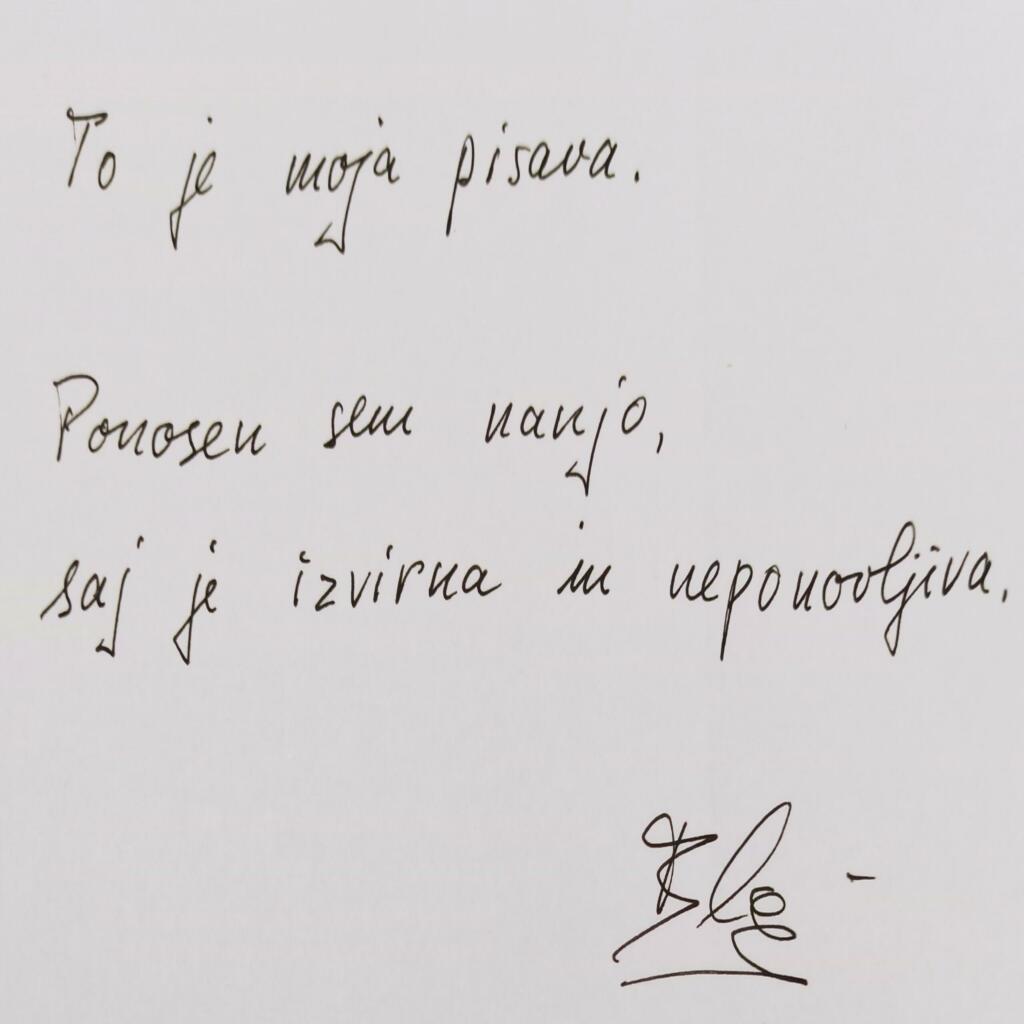 To je moja pisava.
Ponosen sem nanjo,
saj je izvirna in neponovljiva.